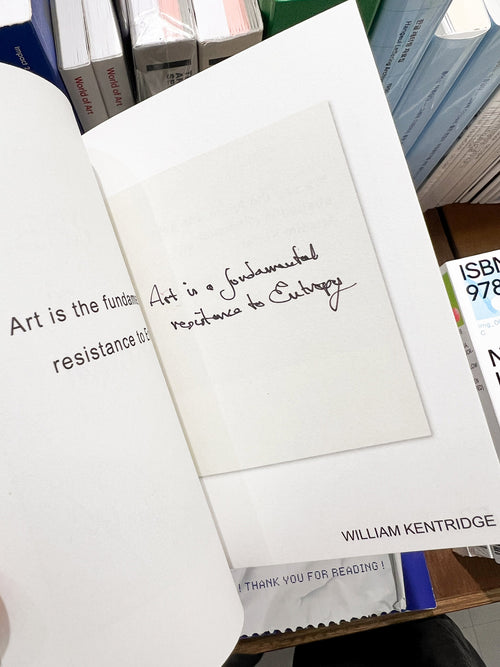 World of Art
World of Art
Art is the fundame
resistance to E
Art is a fundamental
resistance to Entropy
WILLIAM KENTRIDGE
! THANK YOU FOR READING !
ISBN
978